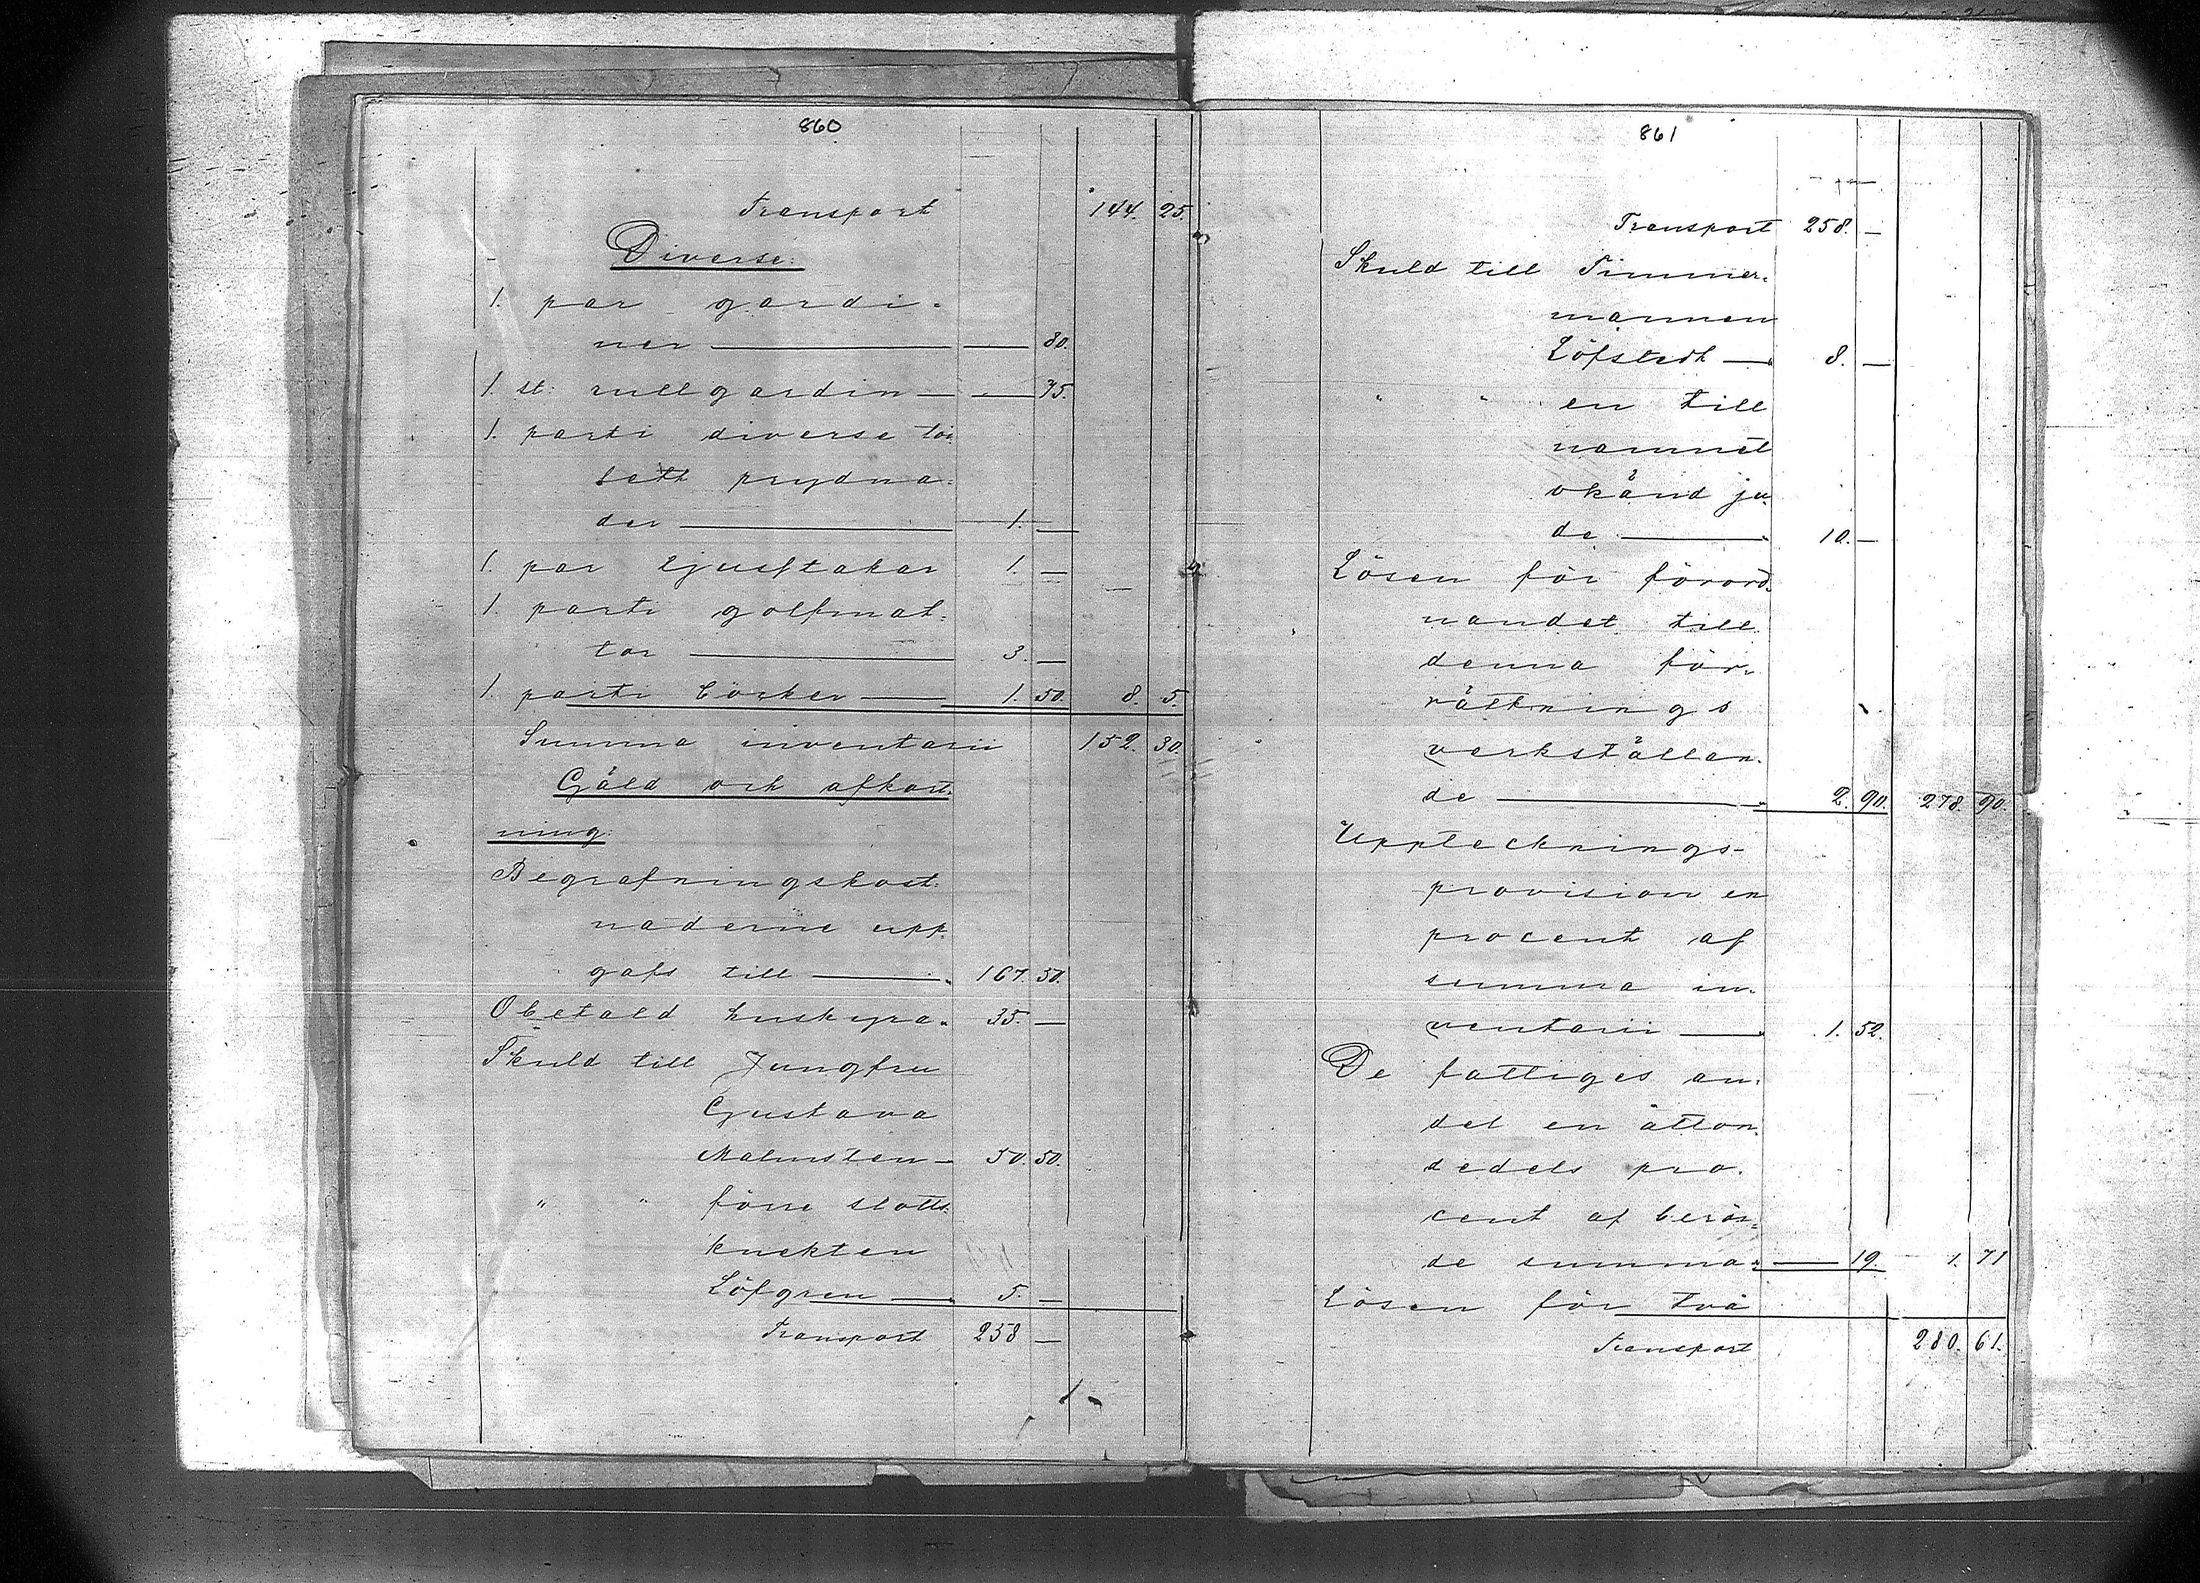 860
Transport 144. 25.
Diverse:
1. par gardi-
ner — — 80.
1. st: rullgardin — — 75.
1. parti diverse toi
lett prydna-
der — 1. —
1. par ljusstakar 1. —
1. parti golfmat-
tor — 3. —
1. parti böcker — 1. 50. 8. 5.
Summa inventarii 152. 30.
Gäld och afkort-
ning:
Begrafningskost-
naderne upp-
gafs till — 167. 50.
Obetald huskyra. 35. —
Skuld till Jungfru
Gustava
Malmsten — 50. 50.
" " förre slotts-
knekten
Löfgren — 5. —
Transport 258 —
861
Transport 258. —
Skuld till Timmer-
mannen
Löfstedt — 8. —
" " en till
namnet
okänd ju-
de — 10. —
Lösen för förord-
nandet till
denna för-
rättnings
verkställan-
de — 2. 90. 278. 90.
Upptecknings-
provision en
procent af
summa in-
ventarii — 1. 52.
De fattiges an-
del en åtton-
dedels pro-
cent af berör-
de summa — 19. 1. 71
Lösen för två
Transport 280. 61.